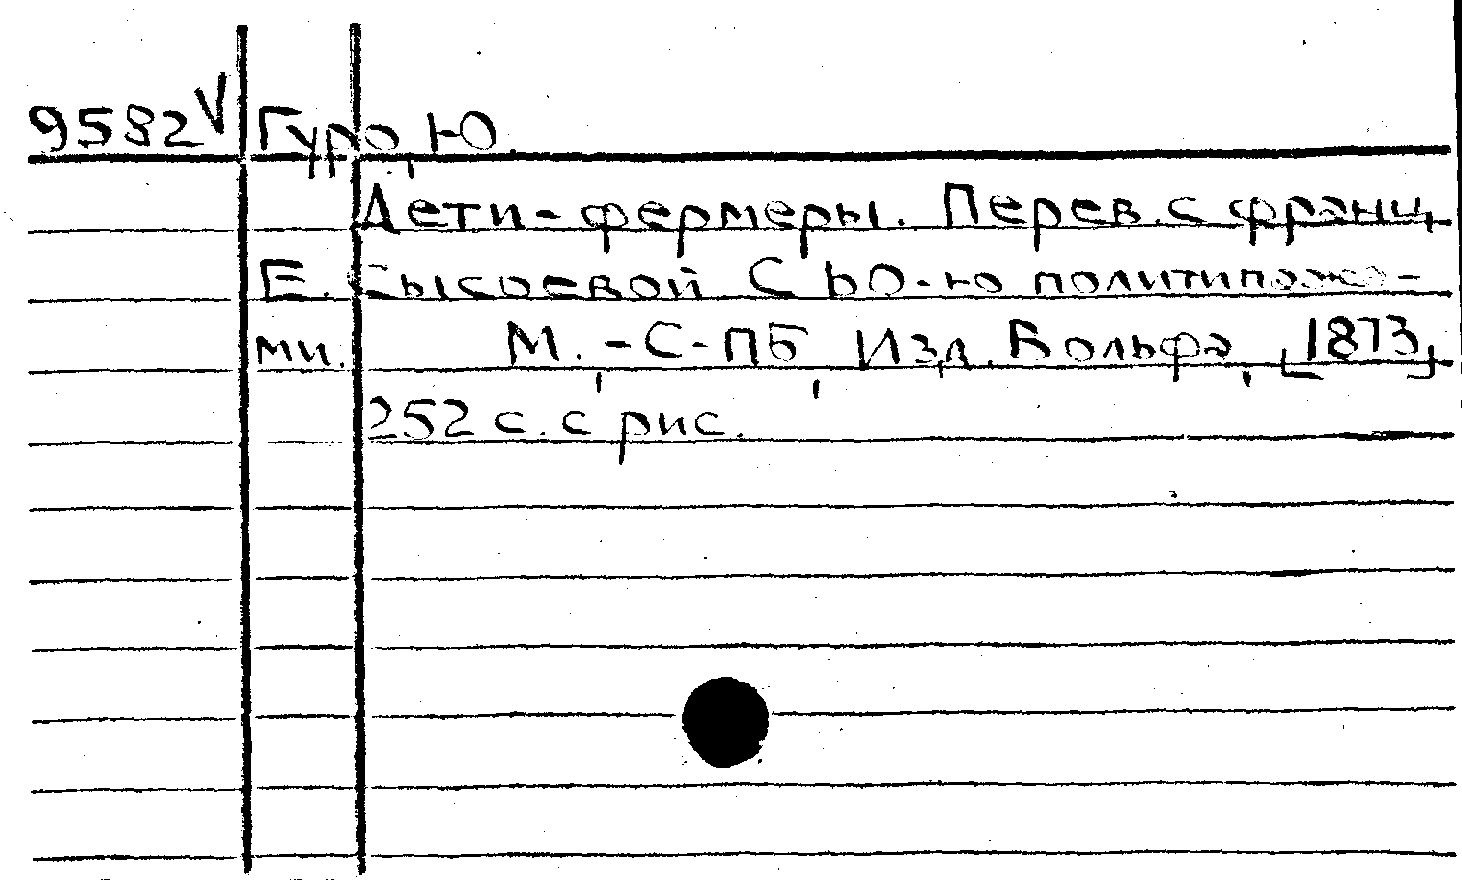 9582 V Гуро, Ю.
Дети-фермеры. Перев. с франц.
Е. Сысоевой С 60-ю политипажа-
ми. М.-С-ПБ, Изд. Вольфа, [1873]
252 с. с рис.